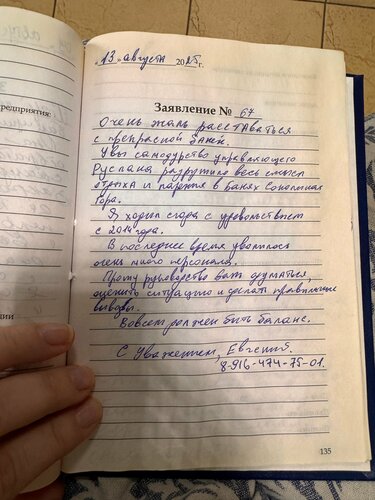 "13" августа 2025 г.
Заявление № 67
Очень жаль расставаться
с прекрасной баней.
Увы самодурство управляющего
Руслана разрушило весь смысл
отдыха и парения в банях Соколиная
Гора.
Я ходил сюда с удовольствием
с 2014 года.
В последнее время уволилось
очень много персонала.
Прошу руководство вас думаться,
оценить ситуацию и сделать правильные
выводы.
Во всем должен быть баланс.
С уважением, Евгений.
8-916-474-75-01.
135
редприятия:
ции